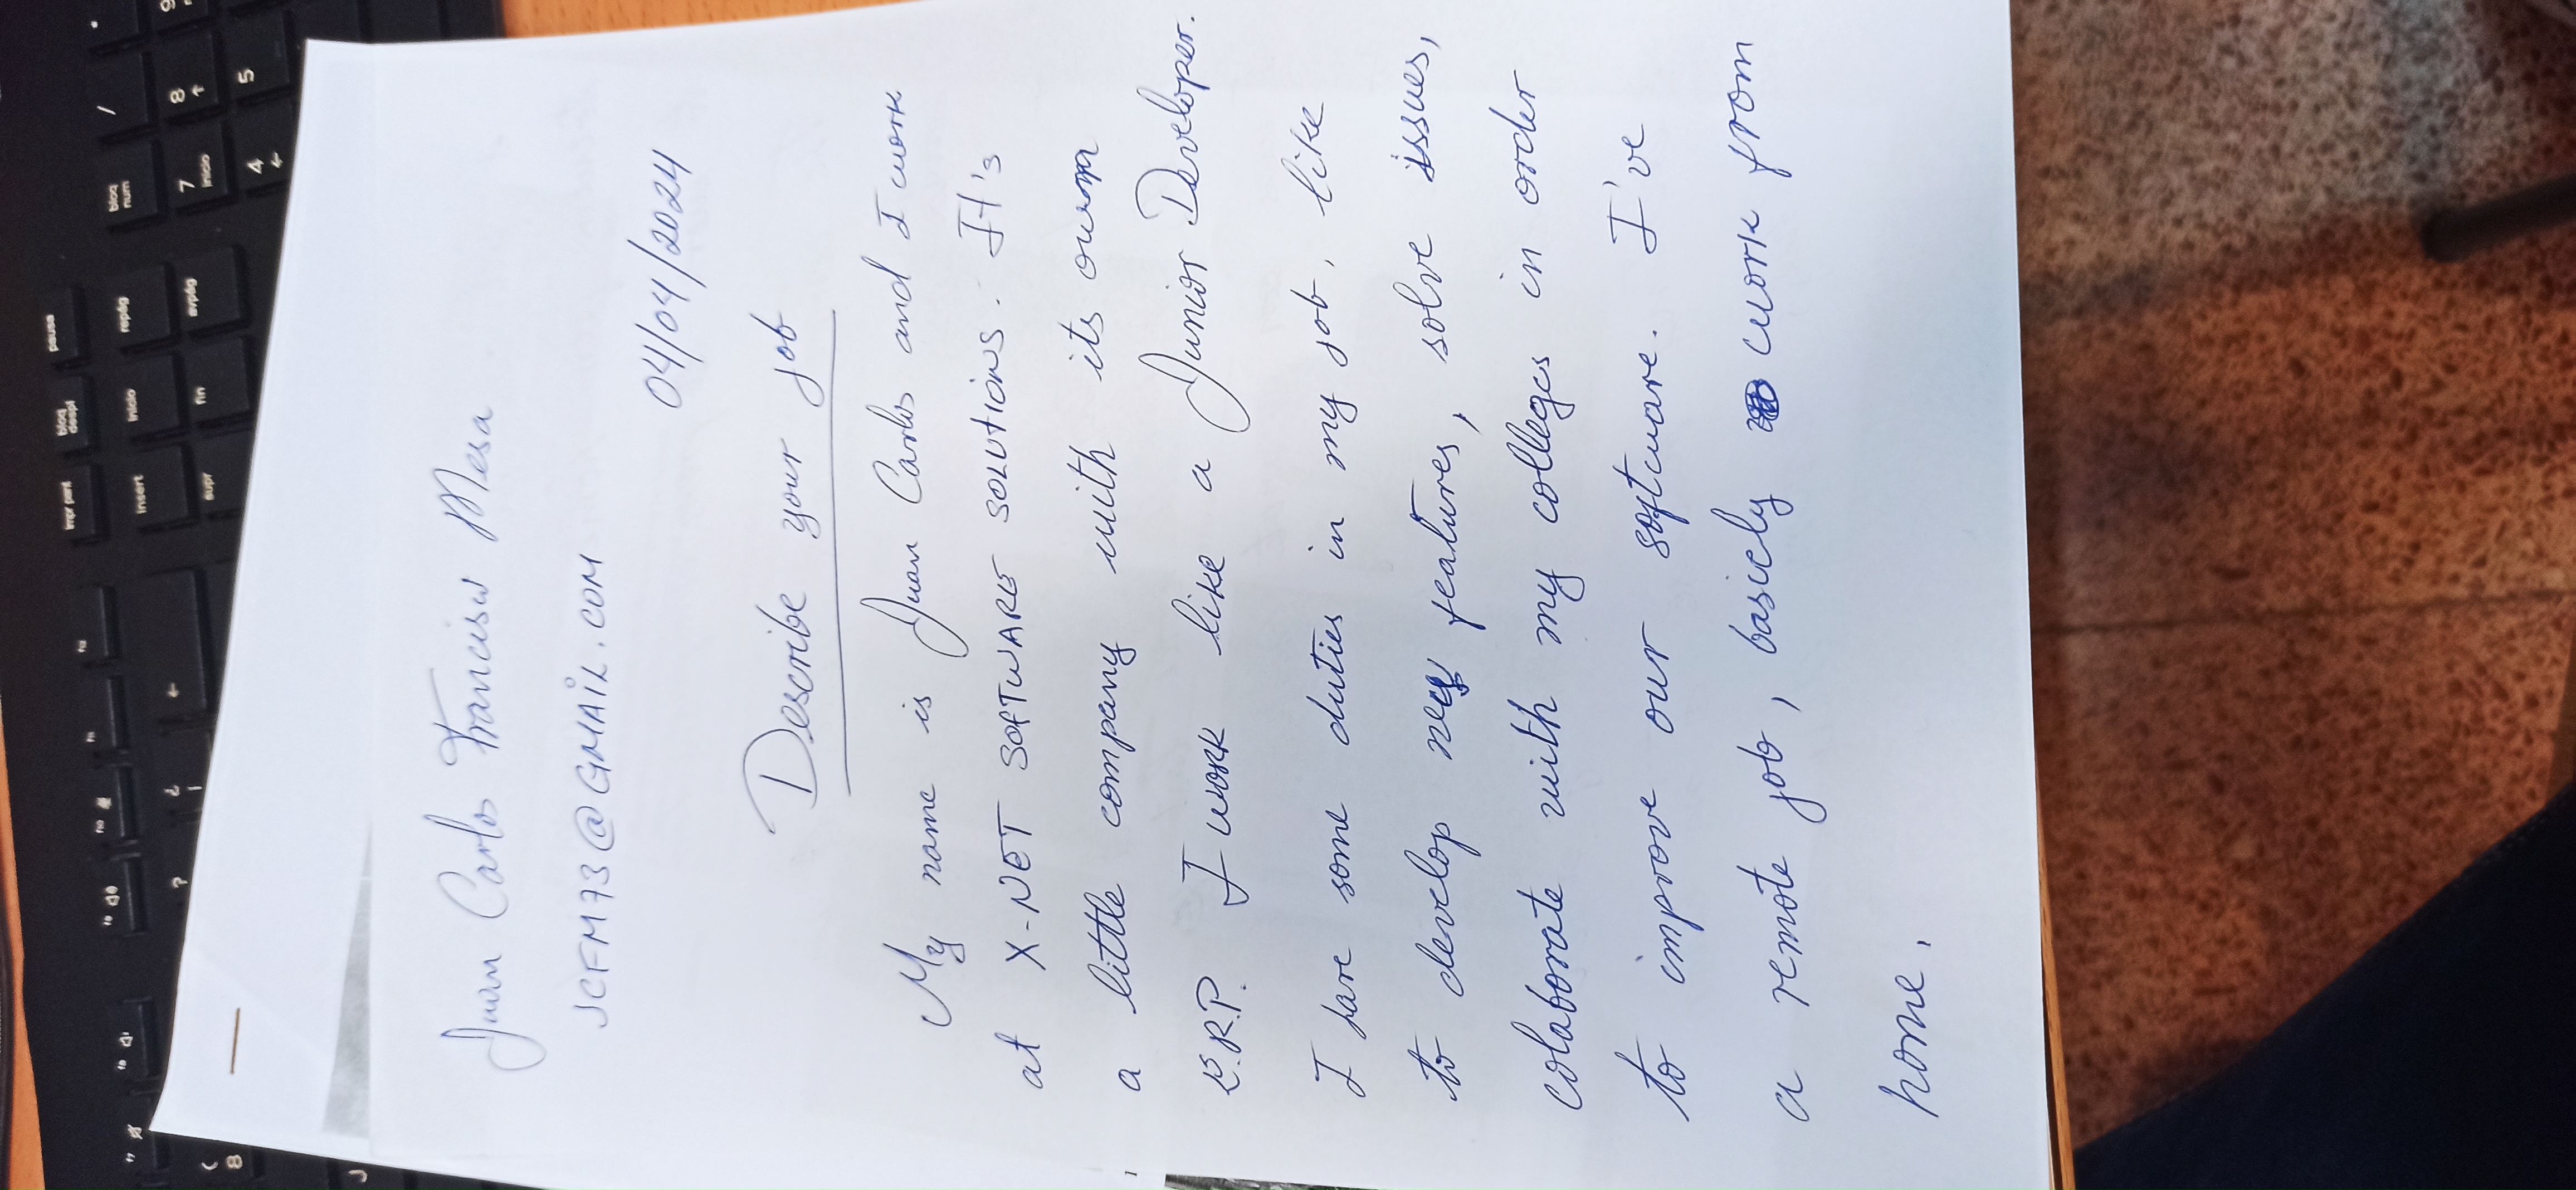 impr pant
bloq despl
pausa
insert
inicio
repág
supr
fin
avpág
bloq num
/
7 inicio
8
4
5
?
¿
(
8
J
Juan Carlos Francisco Mesa
JCFM73@GMAIL.COM
04/04/2024
Describe your job
My name is Juan Carlos and I work
at X-NET SOFTWARE SOLUTIONS. It's
a little company with its own
E.R.P. I work like a Junior Developer.
I have some duties in my job, like
to develop new features, solve issues,
colaborate with my colleges in order
to improve our software. I've
a remote job, basicly work from
home.